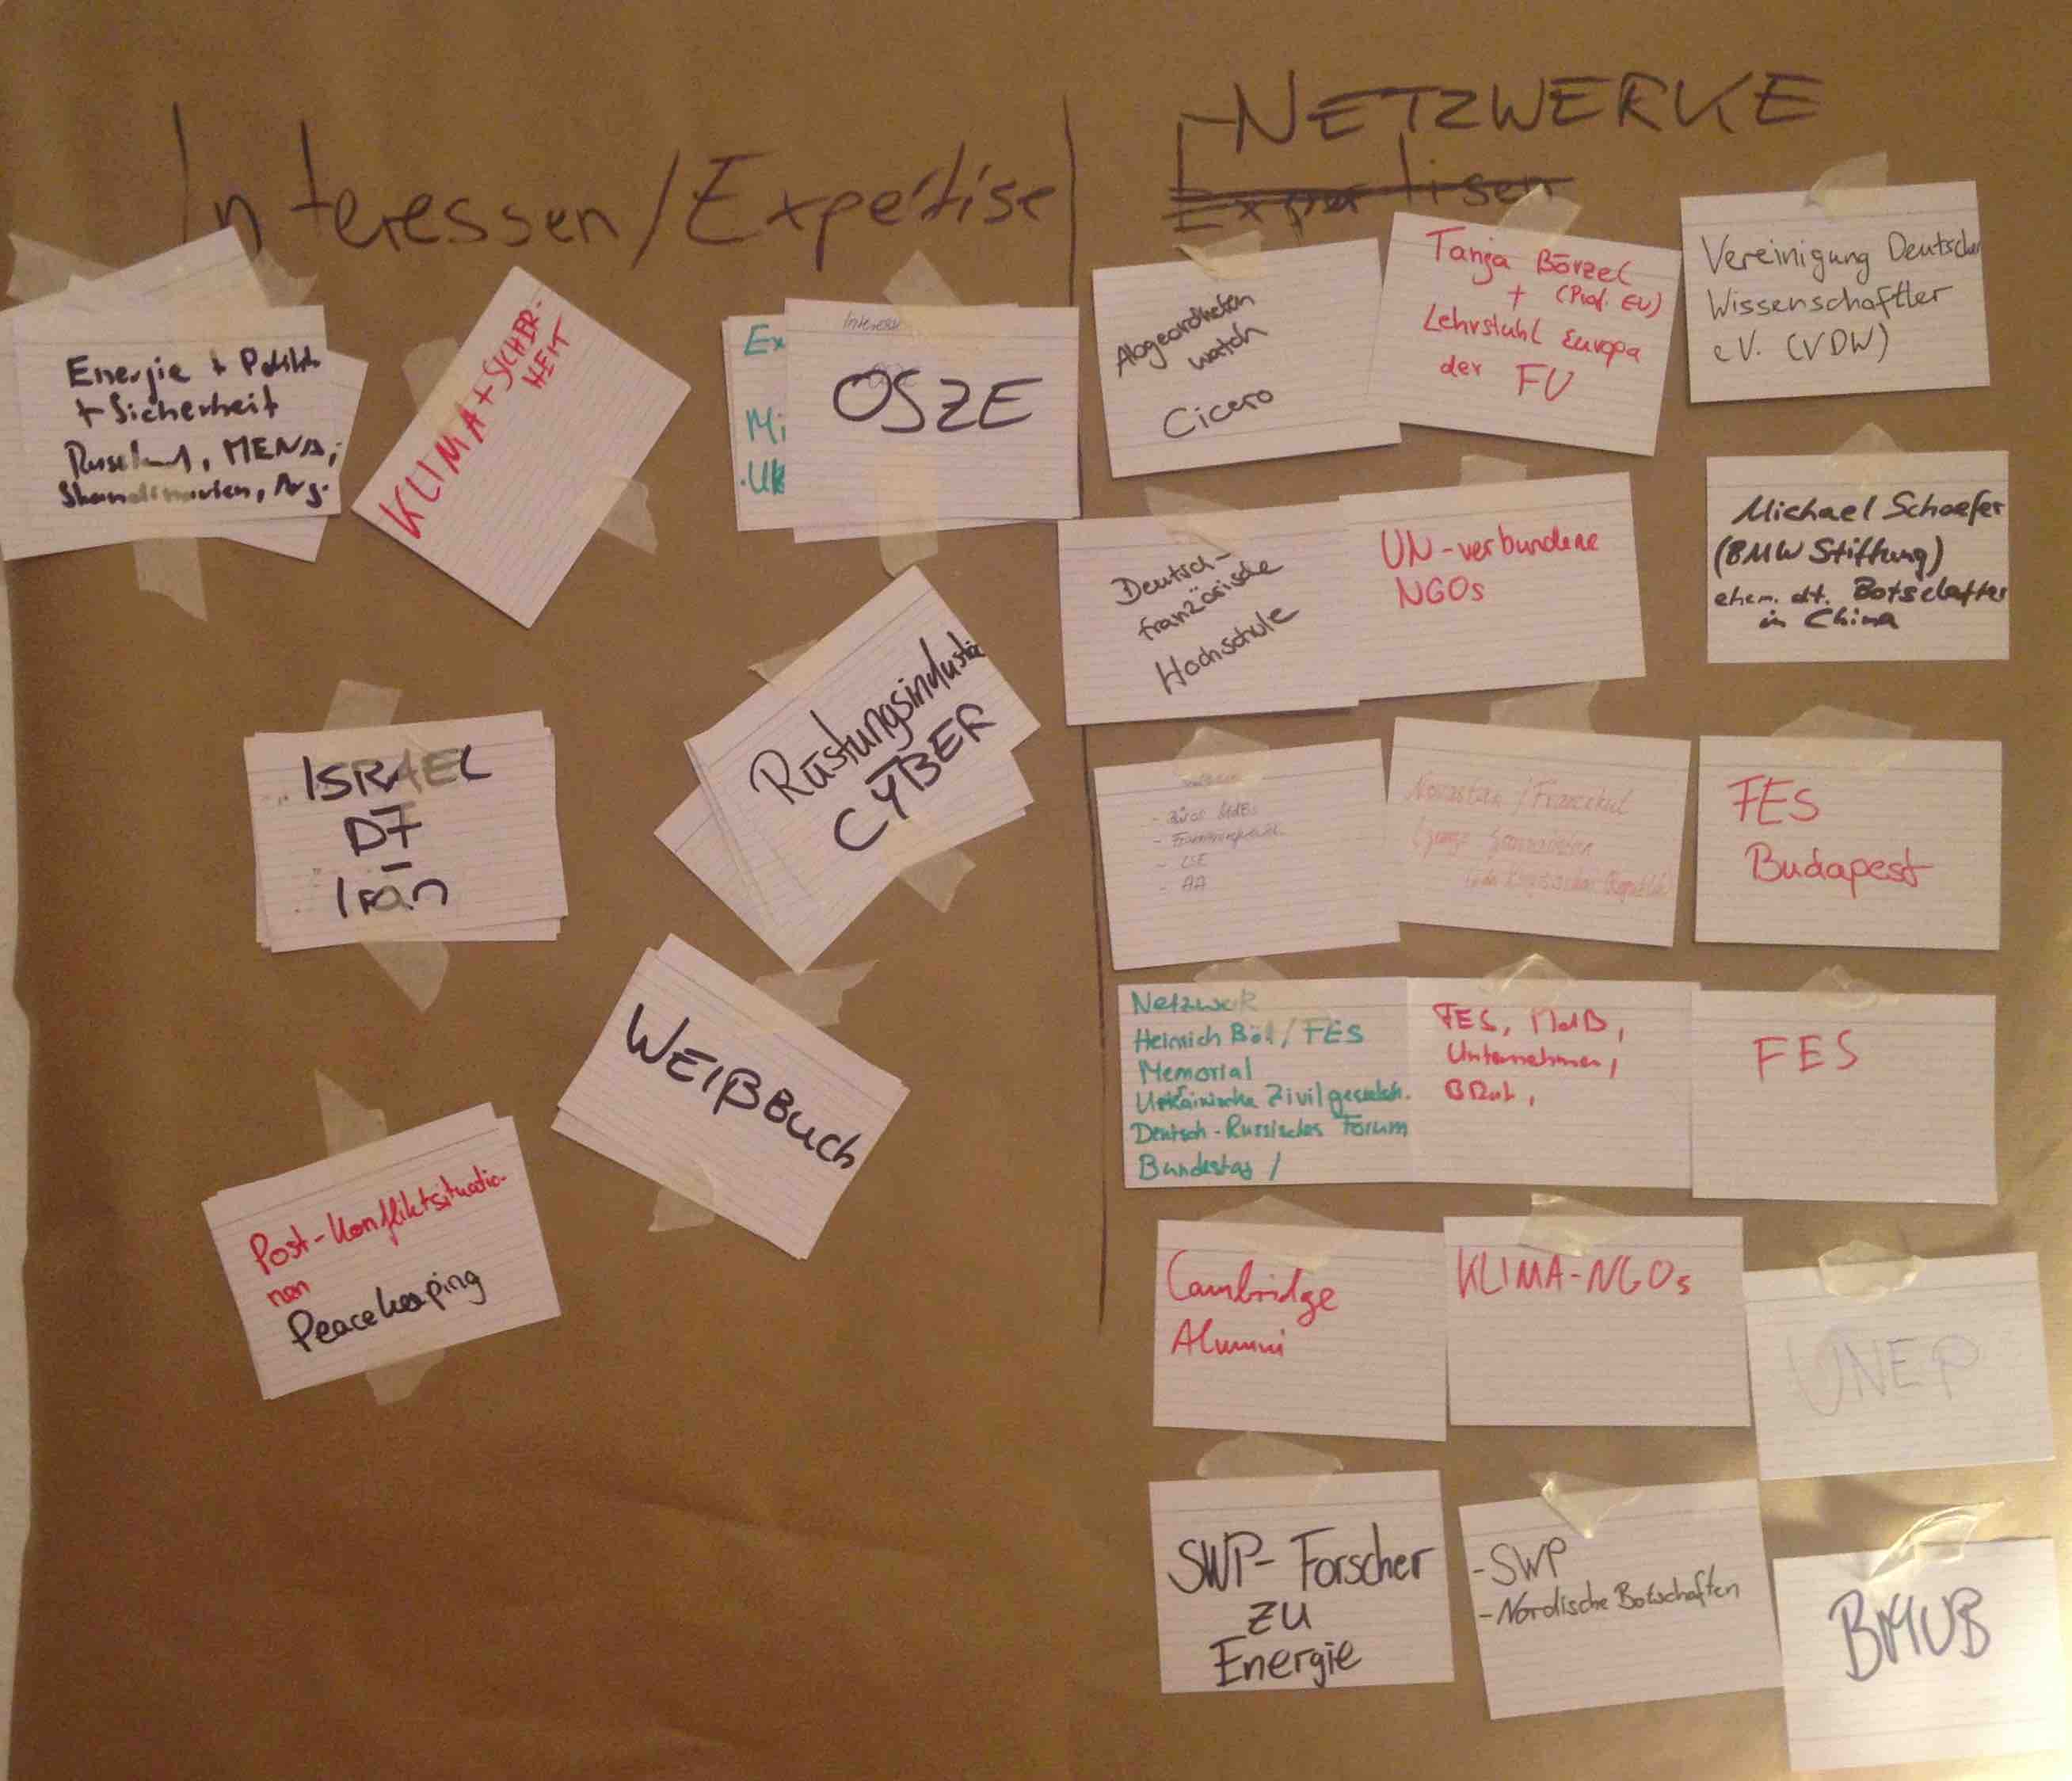 Interessen/Expertise
NETZWERKE
Expertisen
Energie + Politik
+ Sicherheit
Russland, MENA,
Skandinavien, Arg.
KLIMA + SICHER-
HEIT
Ex
Mi
Uk
Interess
OSZE
ISRAEL
D7
-
Iran
Rüstungsindustrie
CYBER
WEIßBUCH
Post-Konfliktsituatio-
nen
Peacekeeping
Abgeordneten
watch
Cicero
Tanja Börzel
+ (Prof. EU)
Lehrstuhl Europa
der FU
Vereinigung Deutscher
Wissenschaftler
e.V. (VDW)
Deutsch-
französische
Hochschule
UN-verbundene
NGOs
Michael Schaefer
(BMW Stiftung)
ehem. dt. Botschafter
in China
- Büros MdBs
- LSE
- AA
FES
Budapest
Netzwerk
Heinrich Böll / FES
Memorial
Ukrainische Zivilgesellsch.
Deutsch-Russisches Forum
Bundestag /
FES, MdB,
Unternehmen,
FES
Cambridge
Alumni
KLIMA-NGOs
UNEP
SWP-Forscher
zu
Energie
- SWP
- Nordische Botschaften
BMUB